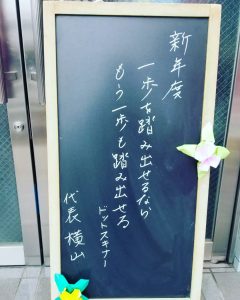 新年度
一歩を踏み出せるなら
もう一歩も踏み出せる
ドットスキナー
代表 横山